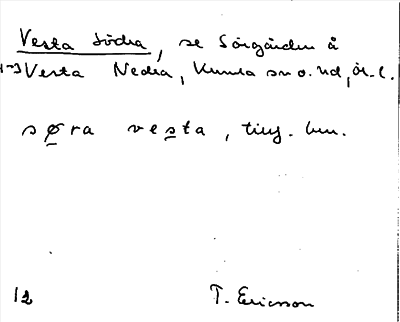 Vesta Södra, se Sörgården å
Vesta Nedra, Kumla sn o. hd, ör. l.
søra vesta, tillf. ben.
12 T. Ericsson